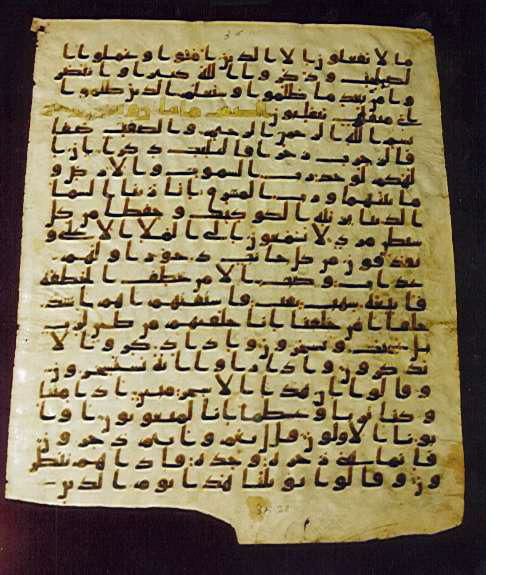 ما لا تفعلون الا الذين امنوا وعملوا ا
لصلحت وذكروا الله كثيرا وانتصر
وا من بعد ما ظلموا وسيعلم الذين ظلموا ا
ى منقلب ينقلبون
بسم الله الرحمن الرحيم والصفت صفا
فالزجرت زجرا فالتليت ذكرا ان ا
لهكم لوحد رب السموت والارض و
ما بينهما ورب المشرق انا زينا السما
الدنيا بزينه الكوكب وحفظا من كل
شيطن مرد لا يسمعون الى الملا الاعلى و
يقذفون من كل جانب دحورا ولهم
عذاب واصب الا من خطف الخطفه
فاتبعه شهب ثقب فاستفتهم اهم اشد
خلقا ام من خلقنا انا خلقنهم من طين لزب
بل عجبت ويسخرون واذا ذكروا لا
يذكرون واذا راوا ايه يستسخرون
وقالوا ان هذا الا سحر مبين اذا متنا
وكنا تربا وعظما انا لمبعوثون او ا
بونا الاولون قل نعم وانتم دخرون
فانما هى زجره وحده فاذا هم ينظر
ون وقالوا يويلنا هذا يوم الدين